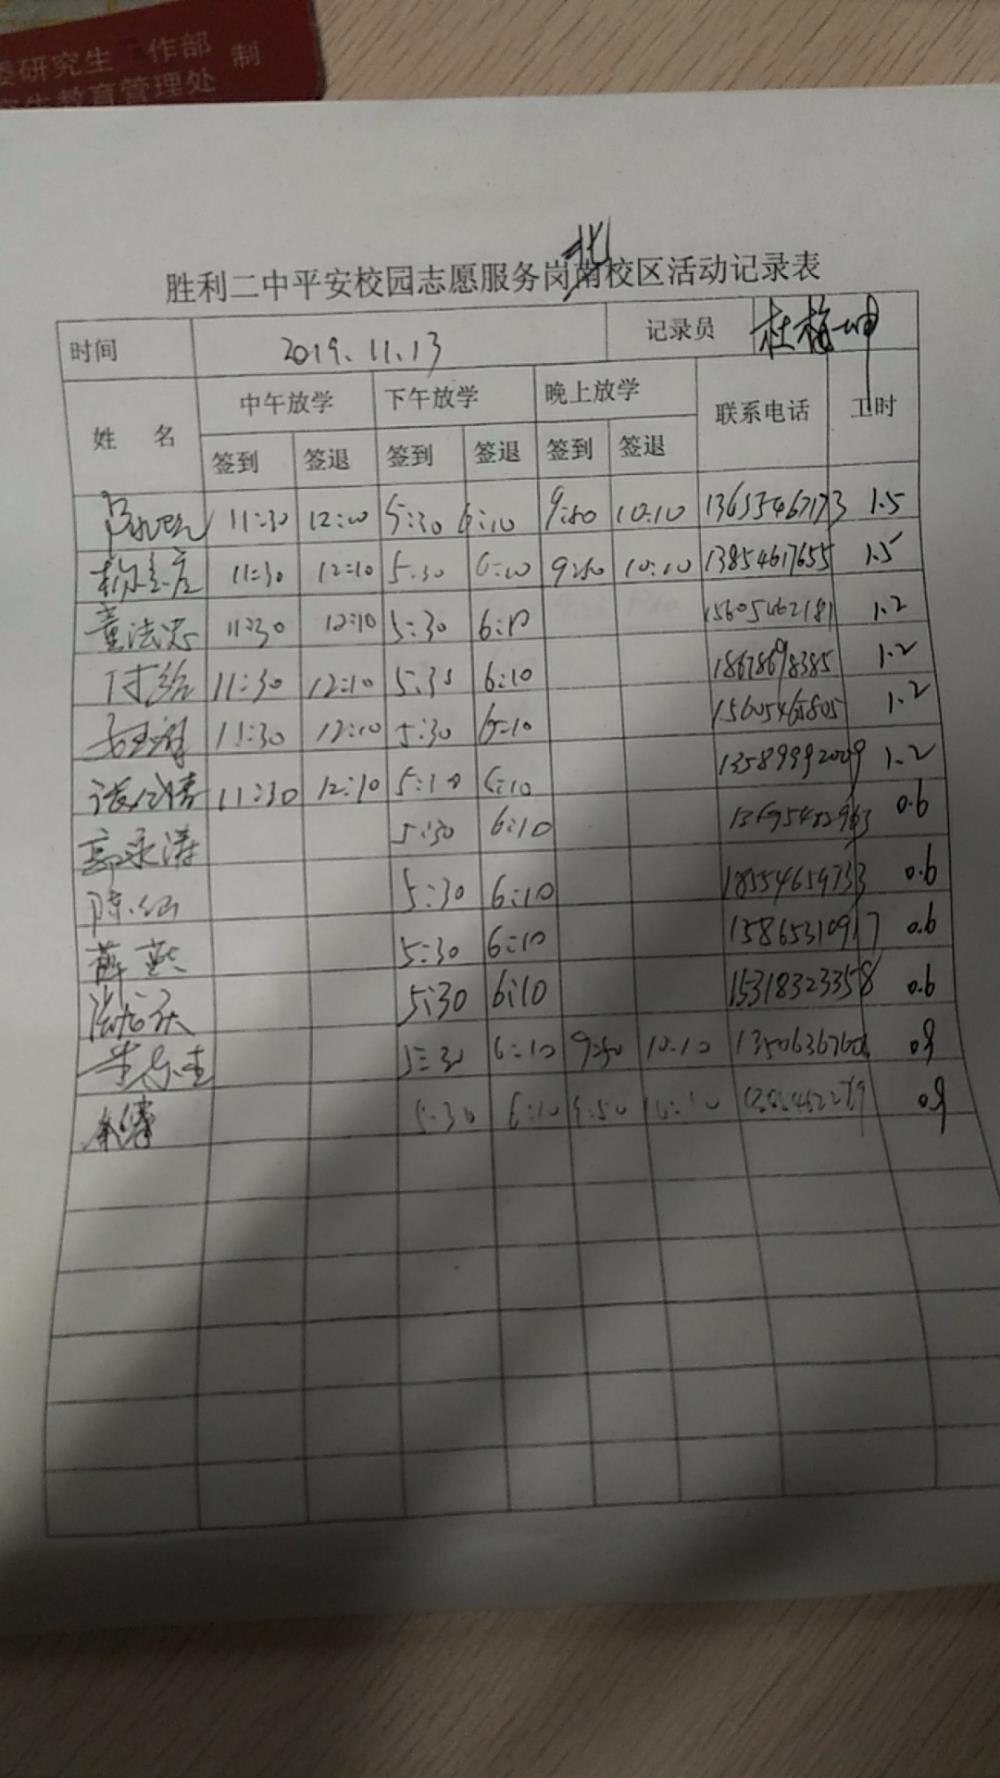 委研究生工作部 制
究生教育管理处
北
胜利二中平安校园志愿服务岗南校区活动记录表
时间 2019.11.13 记录员 杜梅坤
姓 名 中午放学 下午放学 晚上放学 联系电话 工时
签到 签退 签到 签退 签到 签退
11:30 12:10 5:30 6:10 9:50 10:10 1.5
11:30 12:10 5:30 6:10 9:50 10:10 13854617655 1.5
董法忠 11:30 12:10 5:30 6:10 15605462181 1.2
11:30 12:10 5:30 6:10 18678698385 1.2
11:30 12:10 5:30 6:10 15605465805 1.2
张倩 11:30 12:10 5:10 6:10 13589992009 1.2
郭永涛 5:30 6:10 0.6
5:30 6:10 18554659733 0.6
薛燕 5:30 6:10 15865310917 0.6
5:30 6:10 15318323358 0.6
5:30 6:10 9:50 10:10 0.9
5:30 6:10 9:50 10:10 0.9